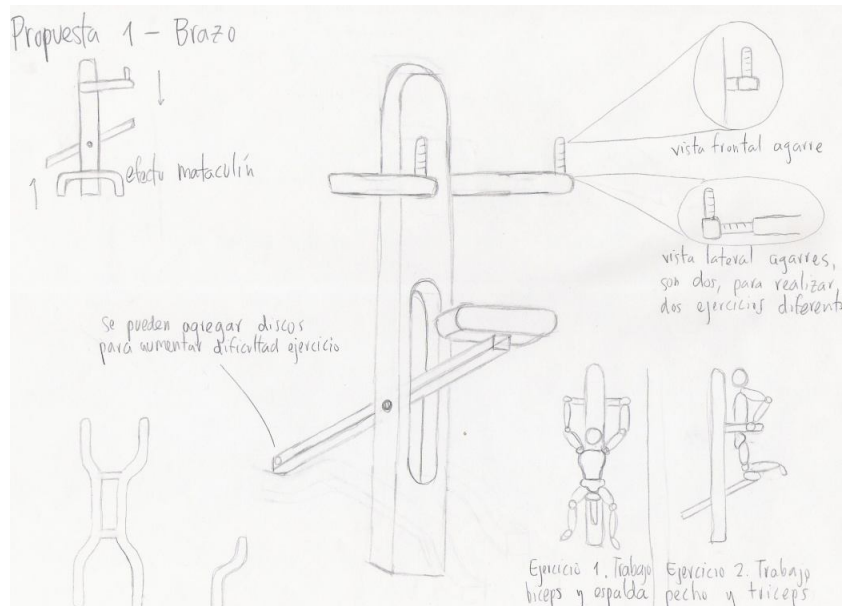 Propuesta 1 - Brazo
efecto mataculín
vista frontal agarre
vista lateral agarres,
son dos, para realizar,
dos ejercicios diferent
se pueden agregar discos
para aumentar dificultad ejercicio
Ejercicio 1. Trabajo
biceps y espalda
Ejercicio 2. Trabajo
pecho y triceps